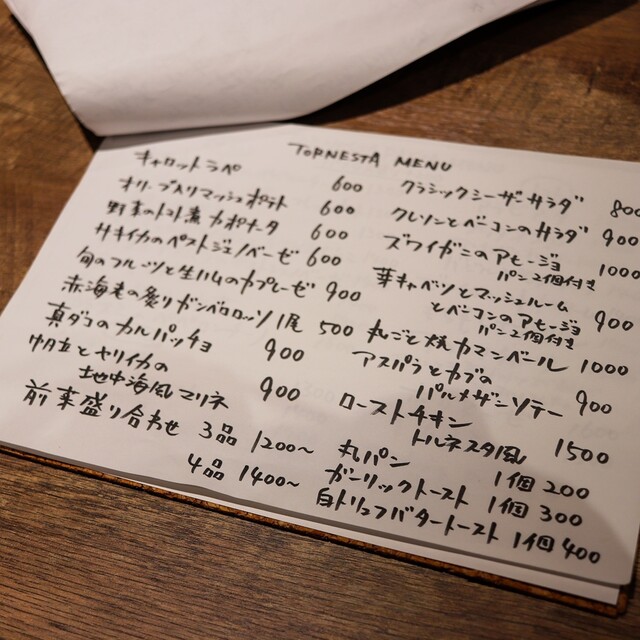 TORNESTA MENU
キャロットラペ 600
オリーブ入りマッシュポテト 600
野菜のトマト煮カポナータ 600
ヤリイカのペストジェノベーゼ 600
旬のフルーツと生ハムのカプレーゼ 900
赤海老の炙りガンベロロッソ1尾 500
真ダコのカルパッチョ 900
帆立とヤリイカの
地中海風マリネ 900
前菜盛り合わせ 3品 1200~
4品 1400~
クラシックシーザーサラダ 800
クレソンとベーコンのサラダ 900
ズワイガニのアヒージョ
パン2個付き 1000
芽キャベツとマッシュルーム
とベーコンのアヒージョ
パン2個付き 900
丸ごと焼カマンベール 1000
アスパラとカブの
パルメザンソテー 900
ローストチキン
トルネスタ風 1500
丸パン 1個 200
ガーリックトースト 1個 300
白トリュフバタートースト 1個 400